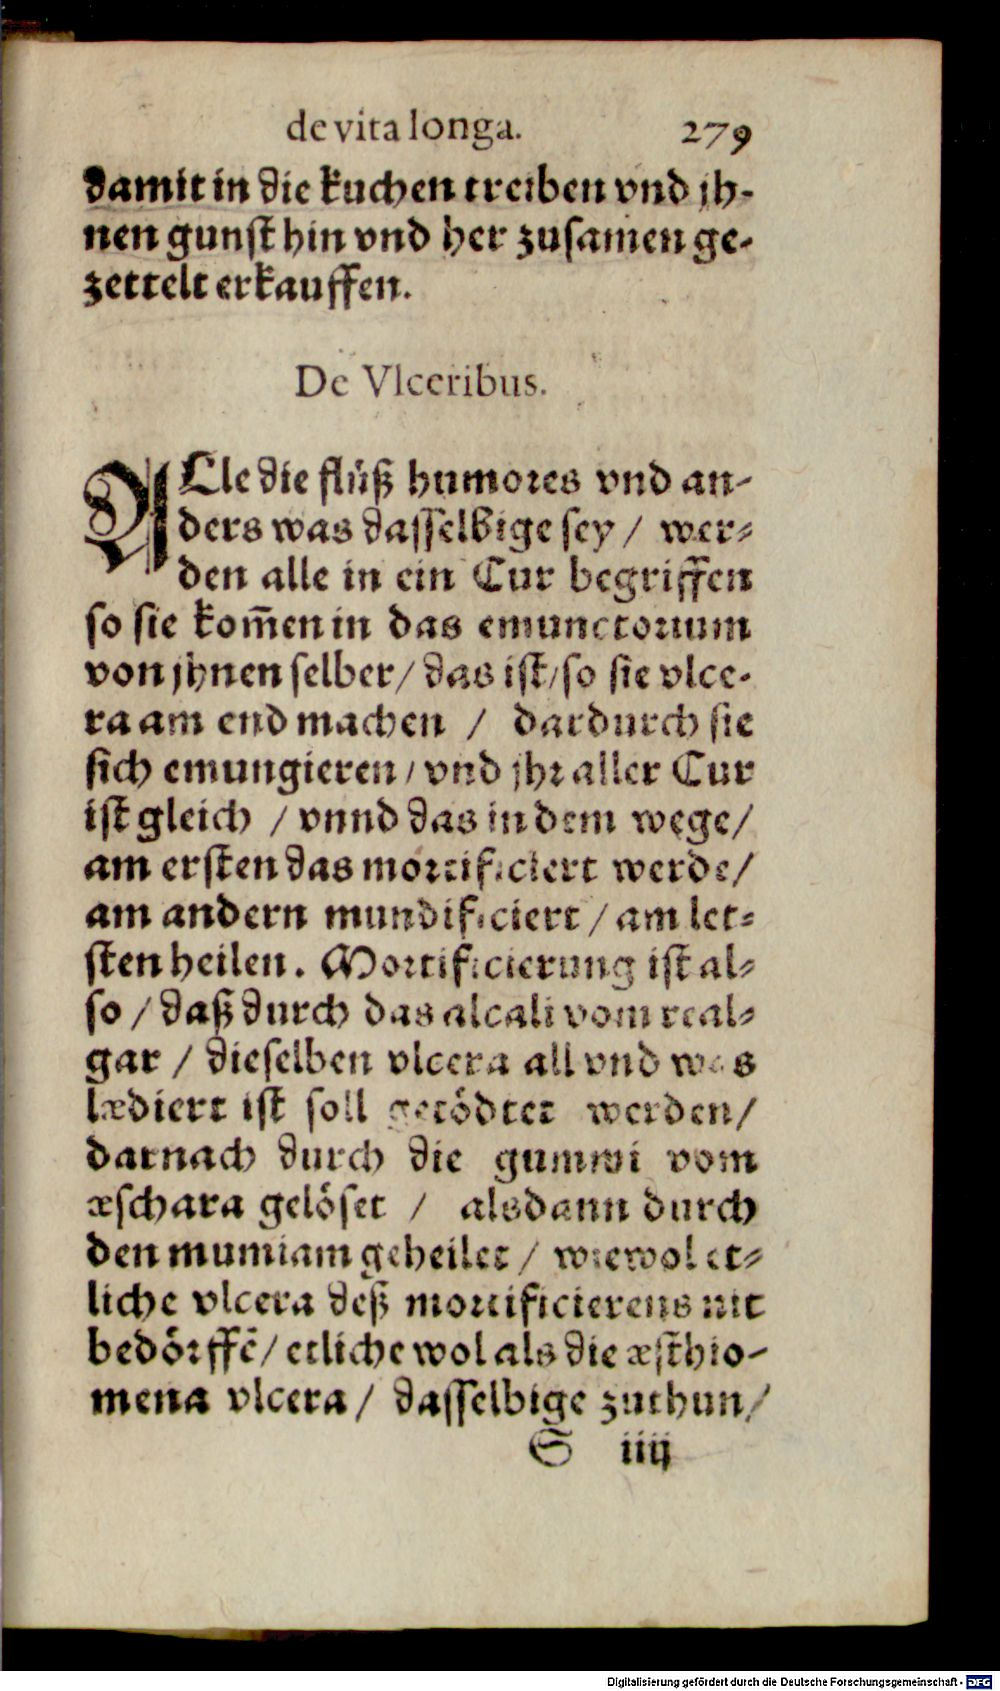 de vita longa. 279
damit in die kuchen treiben vnd jh-
nen gunst hin vnd her zusamen ge-
zettelt erkauffen.
De Vlceribus.
ALle die flüß humores vnd an-
ders was dasselbige sey / wer-
den alle in ein Cur begriffen
so sie kom̄en in das emunctorium
von jhnen selber / das ist / so sie vlce-
ra am end machen / dardurch sie
sich emungieren / vnd jhr aller Cur
ist gleich / vnnd das in dem wege /
am ersten das mortificiert werde /
am andern mundificiert / am let-
sten heilen. Mortificierung ist al-
so / daß durch das alcali vom real-
gar / dieselben vlcera all vnd was
lædiert ist soll getödtet werden /
darnach durch die gummi vom
æschara gelöset / alsdann durch
den mumiam geheilet / wiewol et-
liche vlcera deß mortificierens nit
bedörffē / etliche wol als die æsthio-
mena vlcera / dasselbige zuthun /
S iiij
Digitalisierung gefördert durch die Deutsche Forschungsgemeinschaft - DFG